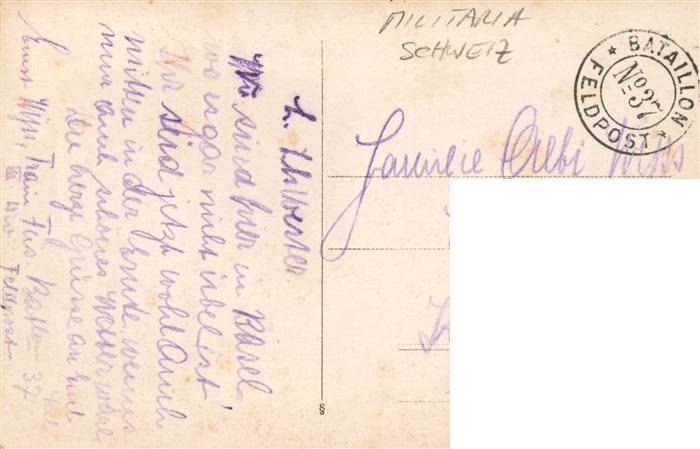 MILITARIA
SCHWEIZ
BATAILLON
No 37
FELDPOST
L. Schwester.
Wir sind hier in Basel
wo es gar nicht übel ist.
Ihr seid jetzt wohl auch
mitten in der Ernte, wenns
nur auch schönes Wetter wäre
Die herzl Grüsse an
Ernst Wyss, Train Füs Batten 37
Feldpost
Familie Wyss
§